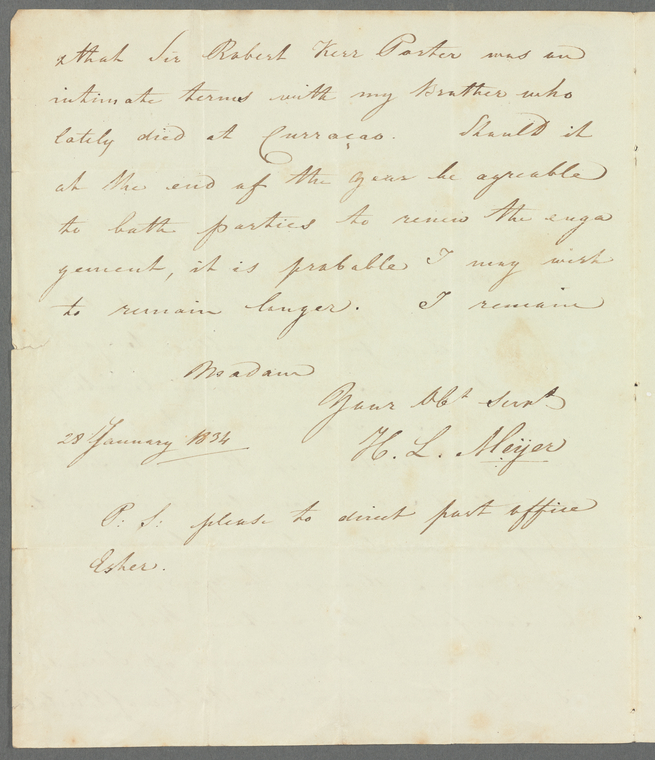 & that Sir Robert Kerr Porter was on
intimate terms with my Brother who
lately died at Curraçao. Should it
at the end of the year be agreable
to both parties to renew the enga
gement, it is probable I may wish
to remain longer. I remain
Madam
Your Obt Servt
28 January 1834
H. L. Meijer
P: S: please to direct post office
Esher.